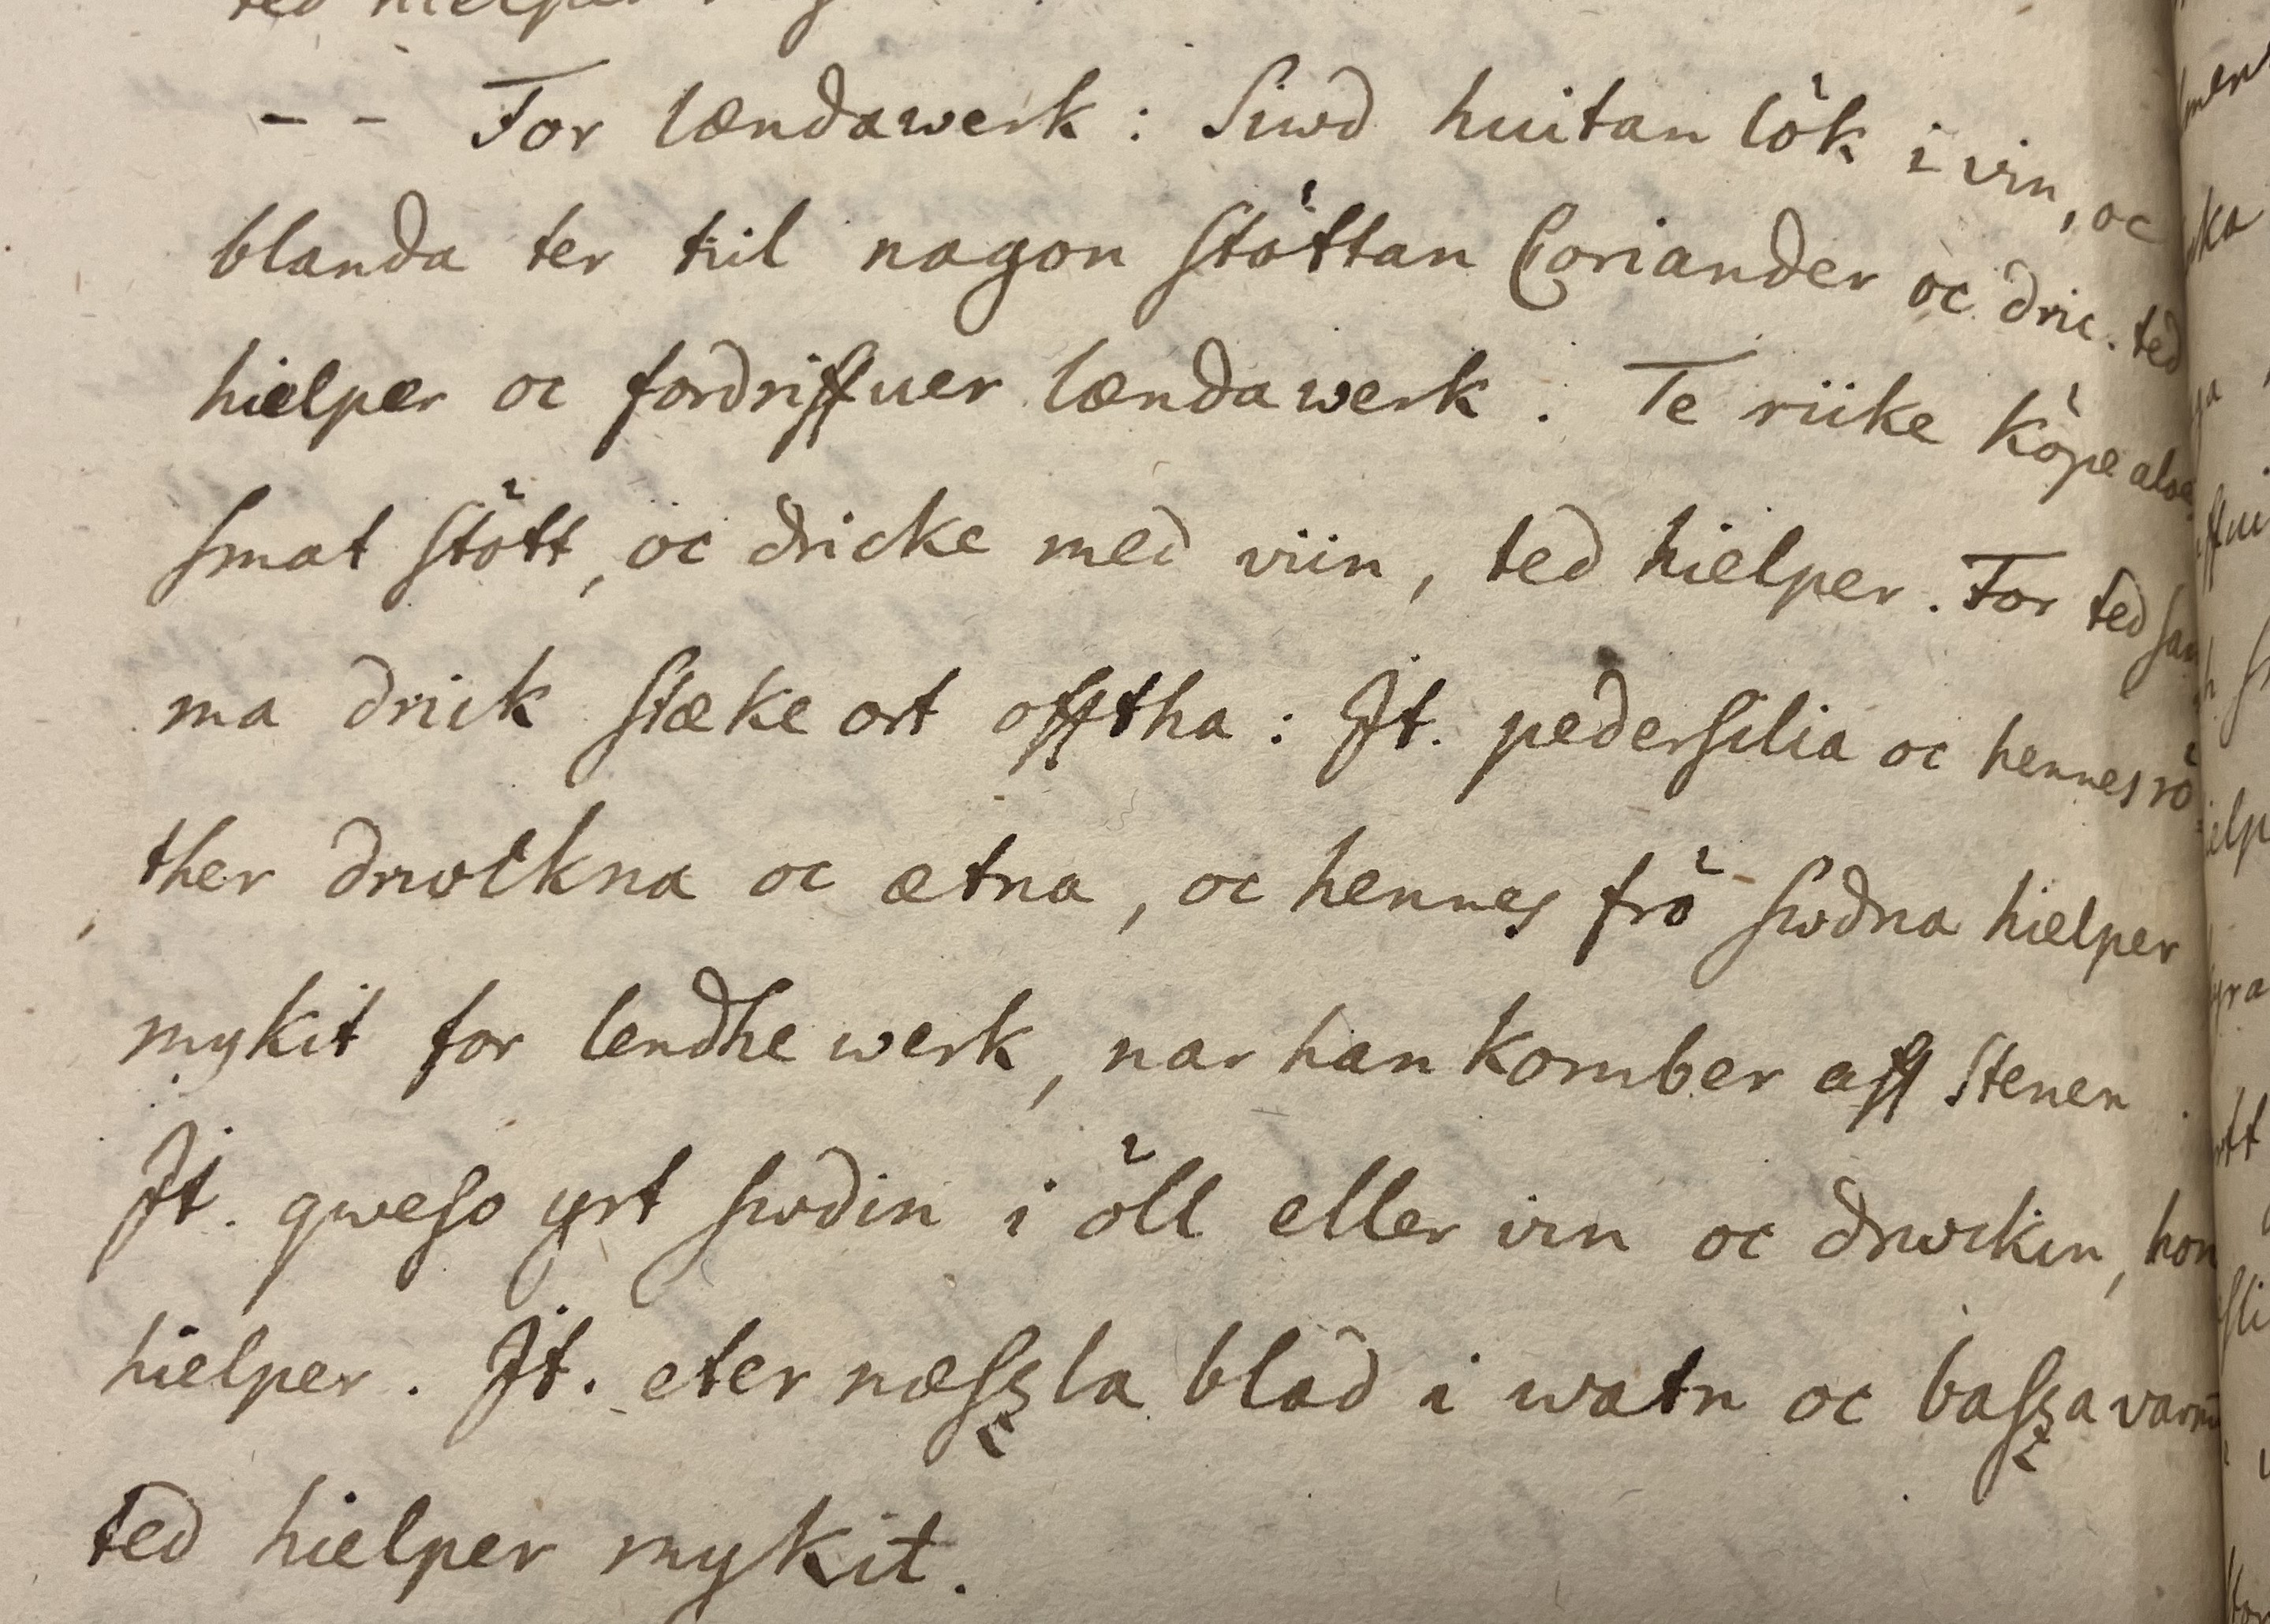 - - For lændawerk : Siwd huitan lök i vin, oc
blanda ter tiil nagon stöttan Coriander oc dric. ted
hielper oc fordriffuer lændawerk. Te riike köpe aloe
smat stött, oc dricke med viin, ted hielper. For ted sam
ma drick stæke ort offtha : It. pedersilia oc hennes rö
ther drwckna oc ætna, oc hennes frö siwdna hielper
mykit for lendhe werk, nar han komber aff stenen
It. qweso yrt siwdin i öll eller vin oc drwckin, hon
hielper. It. eter næszla blad i watn oc basza varmt
ted hielper mykit.